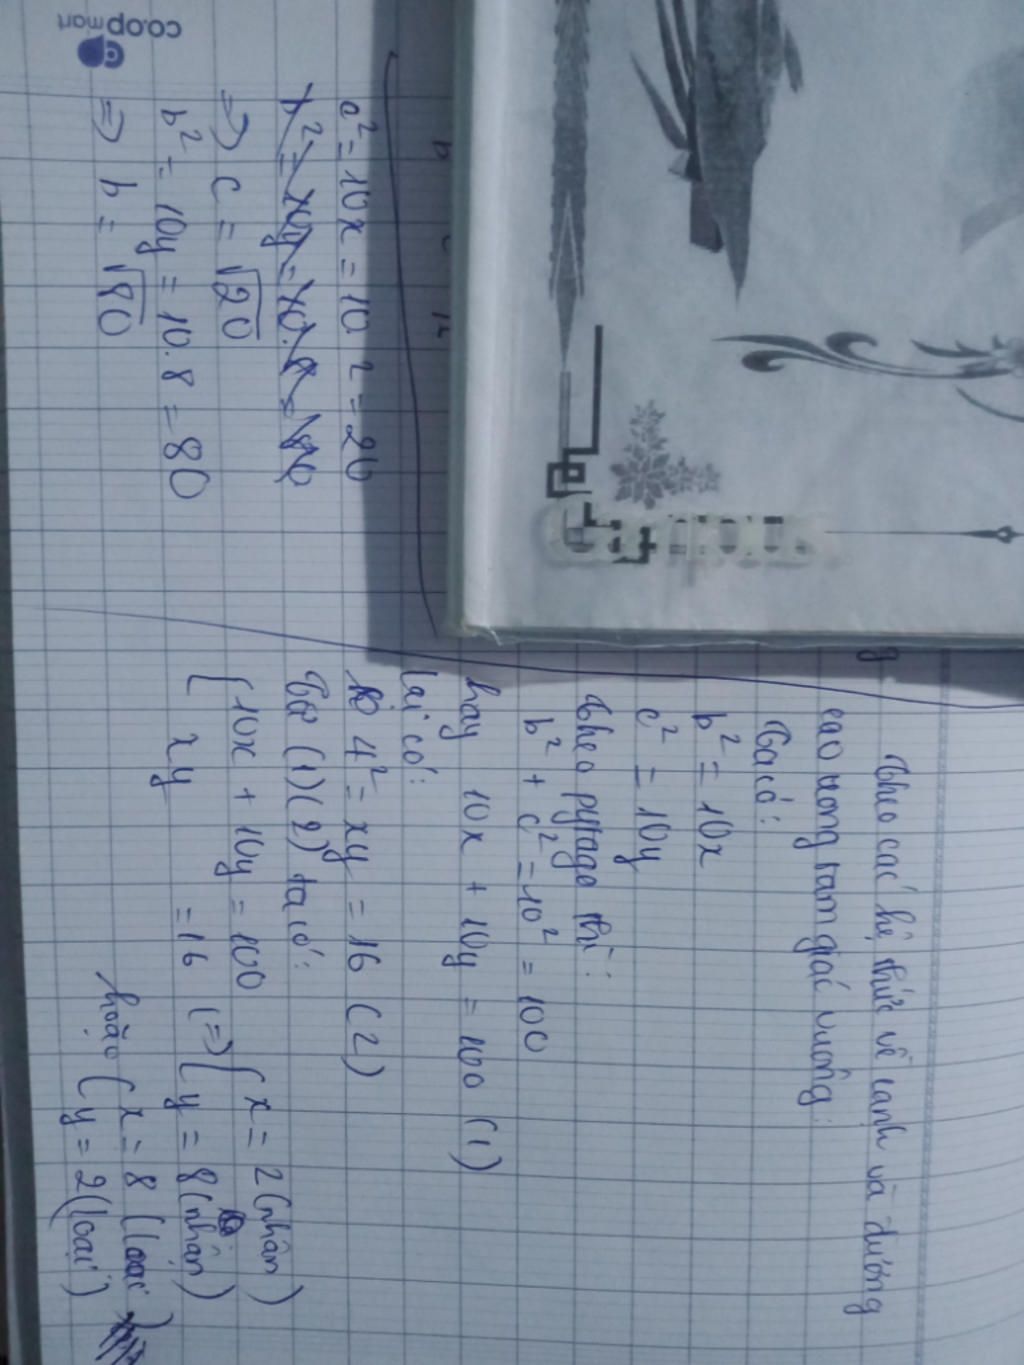 co.opmart
Theo các hệ thức về cạnh và đường
cao trong tam giác vuông:
Ta có:
b² = 10x
c² = 10y
theo pytago thì:
b² + c² = 10² = 100
hay 10x + 10y = 100 (1)
lại có:
4² = xy = 16 (2)
Từ (1)(2) ta có:
{10x + 10y = 100
xy = 16 (=> {x = 2 (nhận)
y = 8 (nhận)
hoặc {x = 8 (loại)
y = 2 (loại)
c² = 10x = 10.2 = 20
=> c = √20
b² = 10y = 10.8 = 80
=> b = √80